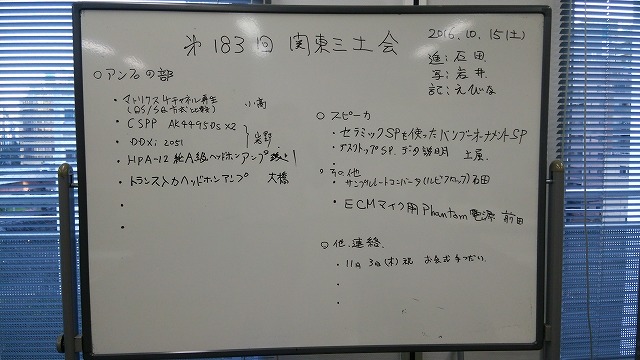 第183回 関東三土会
2016.10.15(土)
進:石田
写:岩井
記:えびな
○アンプの部
・マトリクス4チャネル再生 小高
(QS/SQ方式と比較)
・CSPP AK4495DS×2
・DDXi 2051 岩野
・HPA-12 純A級ヘッドホンアンプ
・トランス入力ヘッドホンアンプ 大橋
・
・
○スピーカ
・セラミックSPを使ったバンブーオーナメントSP
・デスクトップSP データ説明 土屋
・
○その他
・サンプルレートコンバータ(ルビジクロック)石田
・ECMマイク用Phantom電源 前田
○他.連絡.
・11月3日(木)祝
・
・